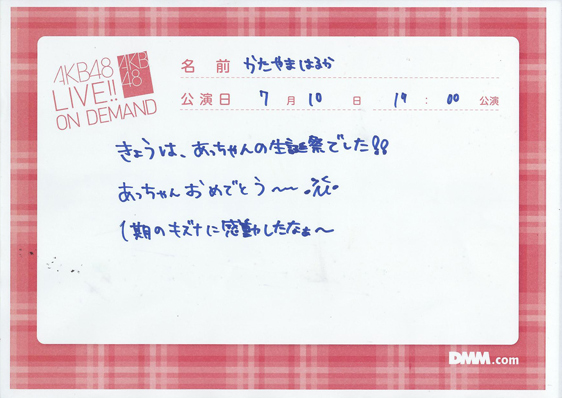 AKB48
LIVE!!
ON DEMAND
AKB
48
名前 かたやまはるか
公演日 7月10日 19:00公演
きょうは、あっちゃんの生誕祭でした!!
あっちゃんおめでとう〜〜
1期のキズナに感動したなぁ〜
DMM.com